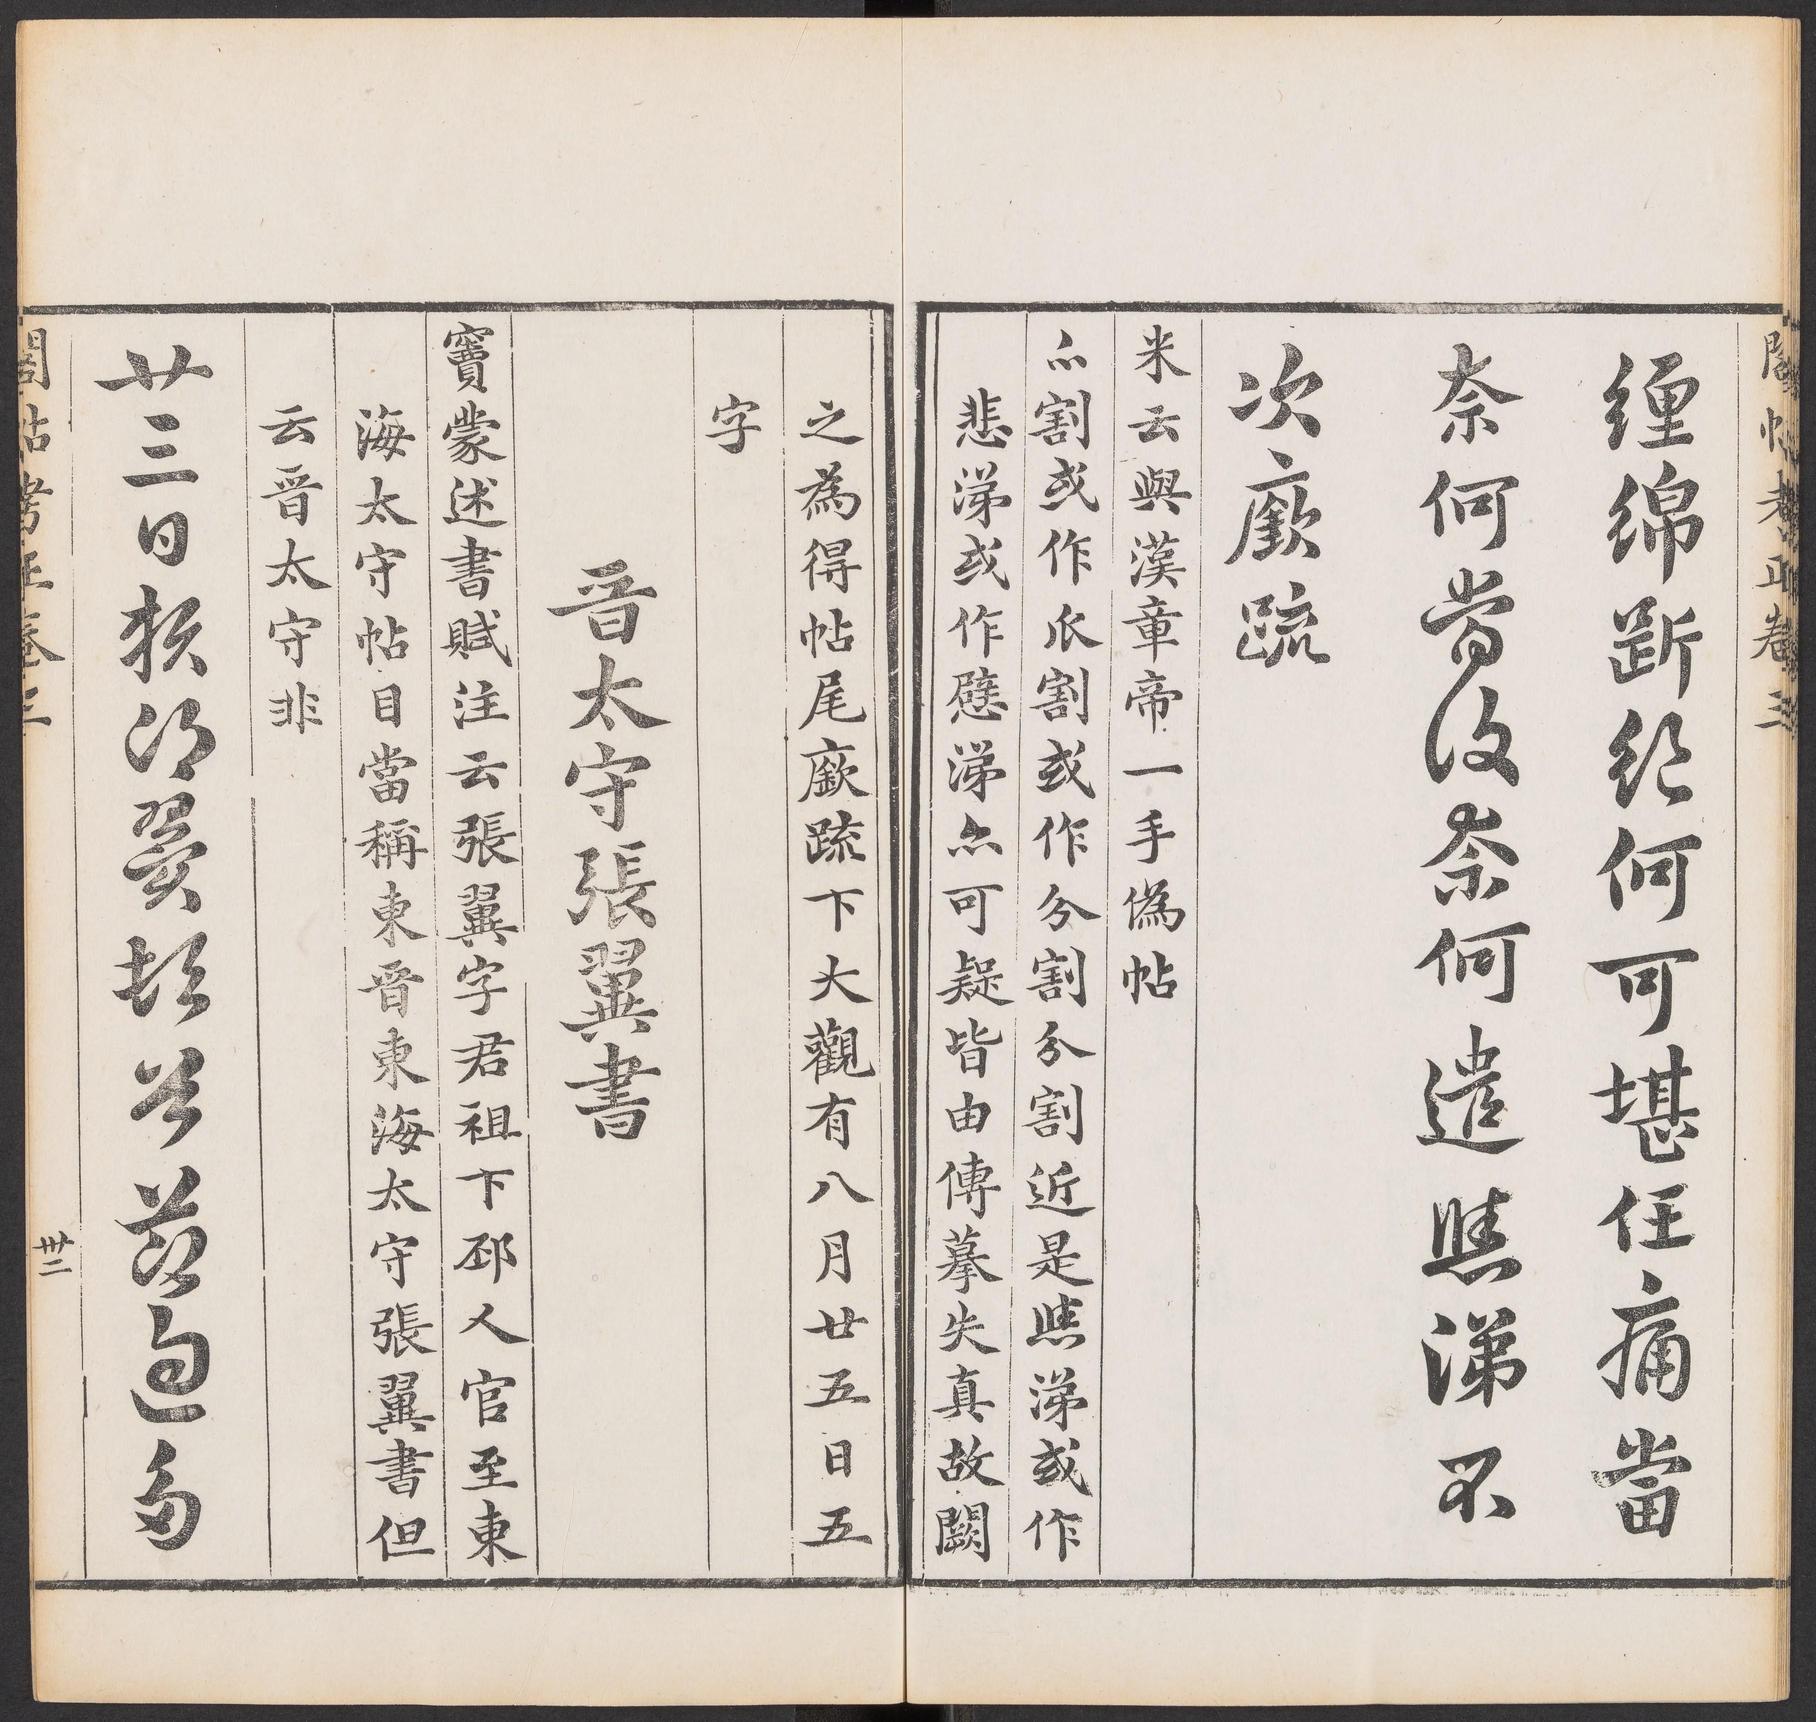 閣帖考正卷三
纏綿斷絕何可堪任痛當
奈何當復奈何遣㷖涕不
次廞疏
米云與漢章帝一手偽帖
尒割或作𠂢割或作分割分割近是㷖涕或作
悲涕或作慇涕尒可疑皆由傳摹失真故闕
之為得帖尾廞疏下大觀有八月廿五日五
字
晉太守張翼書
竇蒙述書賦注云張翼字君祖下邳人官至東
海太守帖目當稱東晉東海太守張翼書但
云晉太守非
廿三日
閣帖考正卷三
卅二